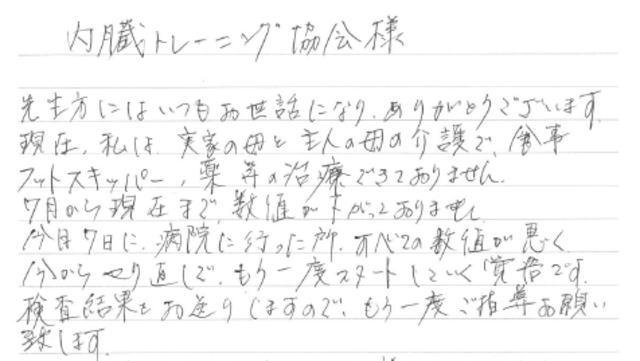 内臓トレーニング協会様
先生方にはいつもお世話になり、ありがとうございます。
現在、私は、実家の母と主人の母の介護で、食事
フットスキッパー、薬等の治療できておりません。
7月から現在まで、数値が下がっておりません。
今月7日に、病院に行った所、すべての数値が悪く
今からやり直しで、もう一度スタートしていく覚悟です。
検査結果をお送りしますので、もう一度ご指導お願い
致します。